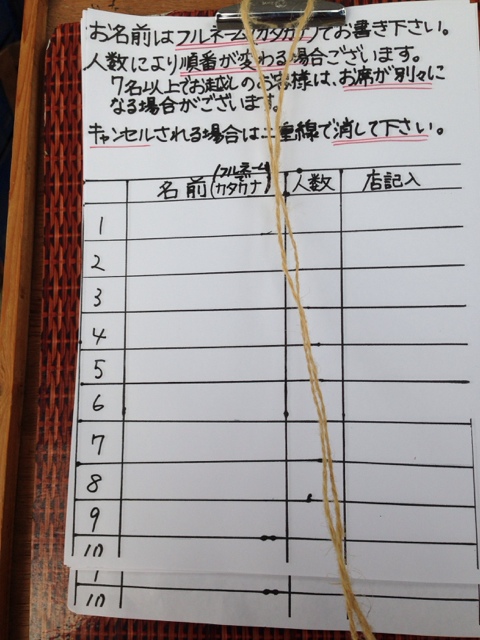 お名前はフルネーム(カタカナ)でお書き下さい。
人数により順番が変わる場合ございます。
7名以上でお越しのお客様は、お席が別々に
なる場合がございます。
キャンセルされる場合は二重線で消して下さい。
名前(フルネームでカタカナ) 人数 店記入
1
2
3
4
5
6
7
8
9
10
10